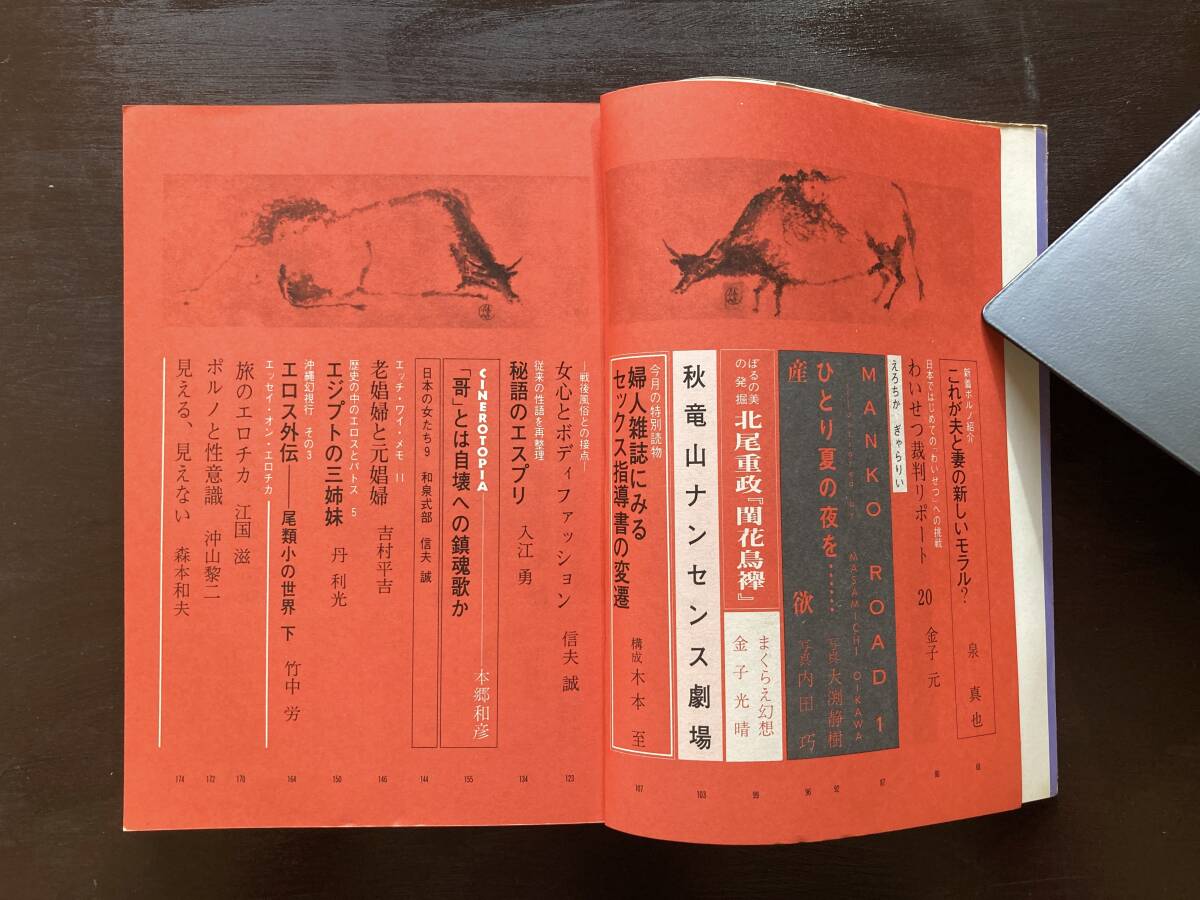 新着ポルノ紹介
これが夫と妻の新しいモラル?
泉 真也
68
日本ではじめての「わいせつ」への挑戦
わいせつ裁判リポート 20
金子 元
80
えろちか・ぎゃらりい
MANKO ROAD 1
MASAMICHI OIKAWA
87
ひとり夏の夜を……
写真 大渕静樹
92
産 欲
写真 内田 巧
96
ぽるの美の発掘
北尾重政『閨花鳥襷』
まくらえ幻想
金子光晴
99
秋竜山ナンセンス劇場
103
今月の特別読物
婦人雑誌にみる
セックス指導書の変遷
構成 木本 至
107
―戦後風俗との接点―
女心とボディファッション
信夫 誠
123
従来の性語を再整理
秘語のエスプリ
入江 勇
134
CINEROTOPIA
「哥」とは自壊への鎮魂歌か
本郷和彦
155
日本の女たち9 和泉式部 信夫 誠
144
エッチ・ワイ・メモ 11
老娼婦と元娼婦
吉村平吉
146
歴史の中のエロスとパトス 5
エジプトの三姉妹
丹 利光
150
沖縄幻視行 その3
エロス外伝――尾類小の世界 下
竹中 労
164
エッセイ・オン・エロチカ
旅のエロチカ 江国 滋
170
ポルノと性意識 沖山黎二
172
見える、見えない 森本和夫
174